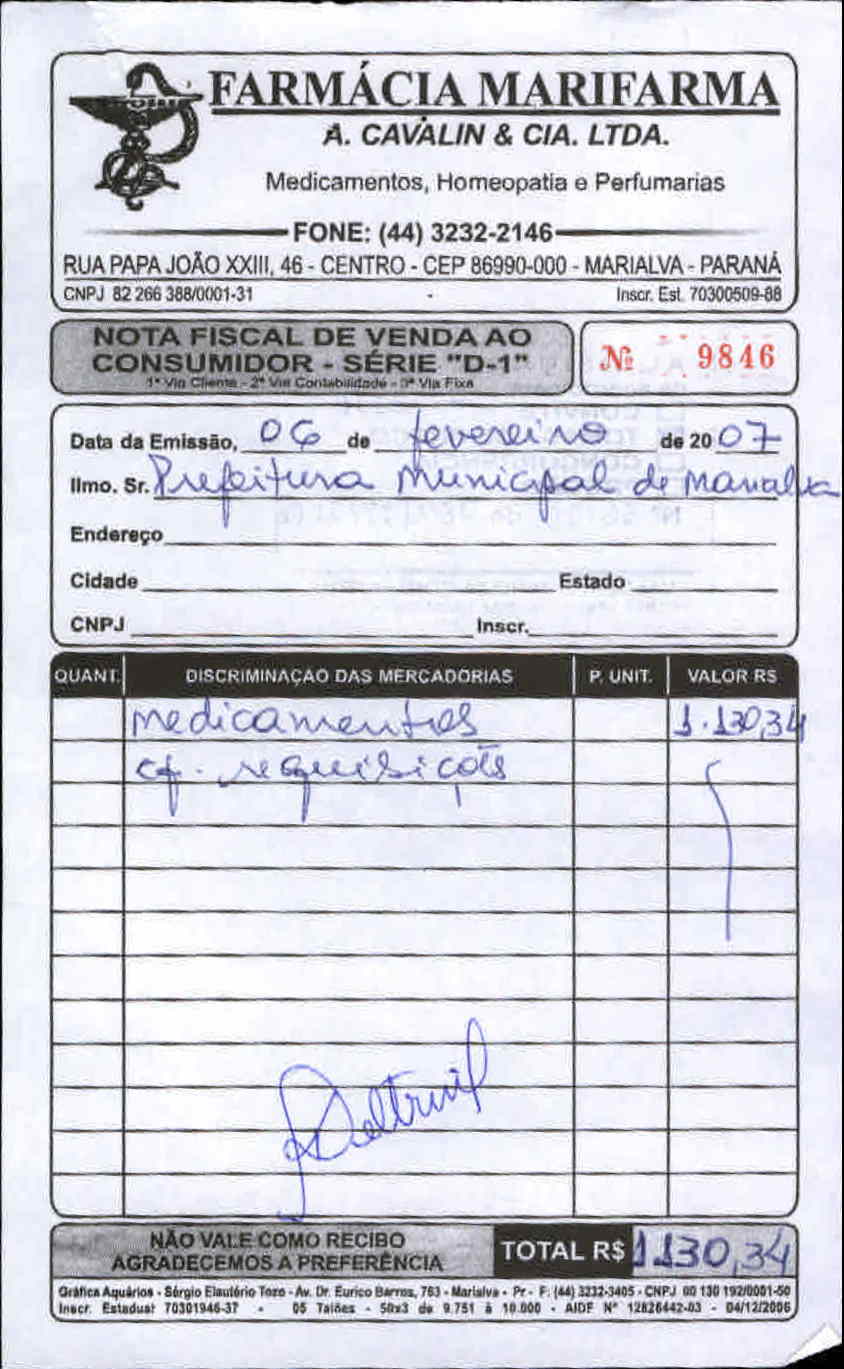 FARMÁCIA MARIFARMA
A. CAVALIN & CIA. LTDA.
Medicamentos, Homeopatia e Perfumarias
FONE: (44) 3232-2146
RUA PAPA JOÃO XXIII, 46 - CENTRO - CEP 86990-000 - MARIALVA - PARANÁ
CNPJ 82 266 388/0001-31 Inscr. Est. 70300509-88
NOTA FISCAL DE VENDA AO
CONSUMIDOR - SÉRIE "D-1"
1ª Via Cliente - 2ª Via Contabilidade - 3ª Via Fixa
Nº 9846
Data da Emissão, 06 de fevereiro de 2007
Ilmo. Sr. Prefeitura Municipal de Marialva
Endereço
Cidade Estado
CNPJ Inscr.
QUANT. DISCRIMINAÇÃO DAS MERCADORIAS P. UNIT. VALOR R$
medicamentos 1.130,34
cf. requisições
NÃO VALE COMO RECIBO
AGRADECEMOS A PREFERÊNCIA
TOTAL R$ 1130,34
Gráfica Aquários - Sérgio Elautério Tozo - Av. Dr. Eurico Barros, 763 - Marialva - Pr - F: (44) 3232-3405 - CNPJ 00 130 192/0001-50
Inscr. Estadual 70301946-37 - 05 Talões - 50x3 de 9.751 à 10.000 - AIDF Nº 12826442-03 - 04/12/2006